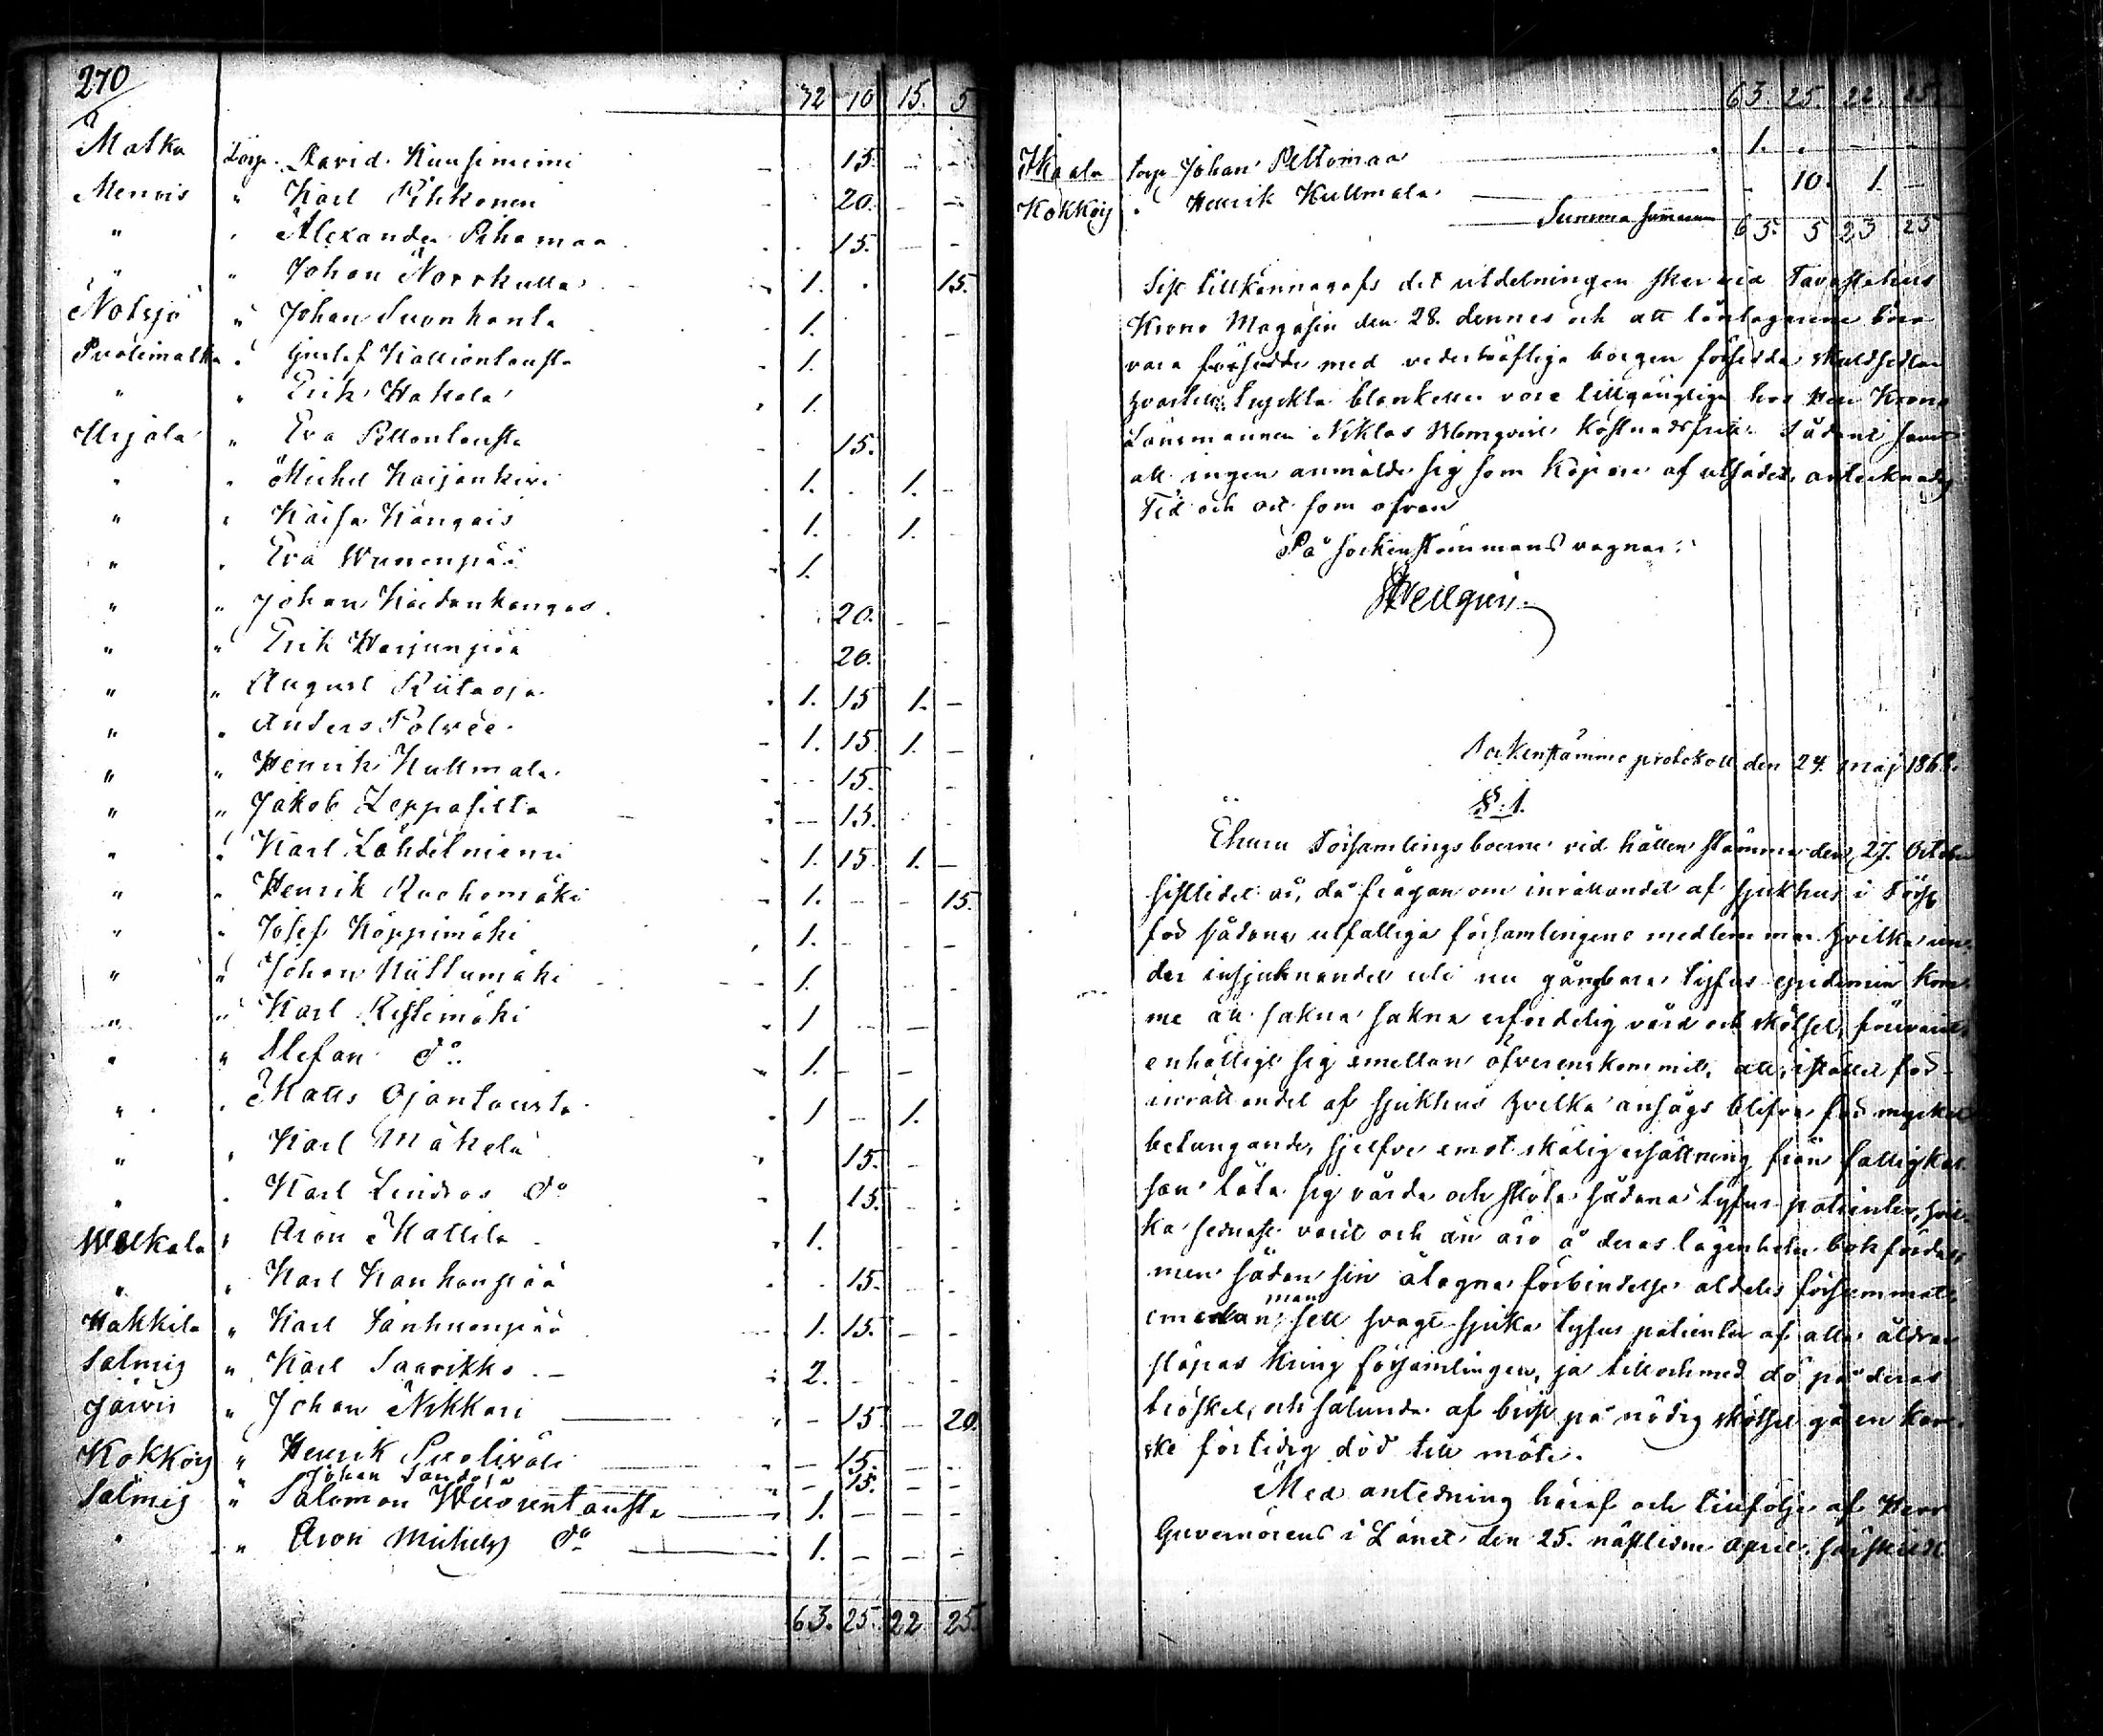 270
32 10 15. 5
Matka Torp. David Kuusiniemi - 15. - -
Menvis " Karl Pihkanen - 20. - -
" " Alexander Pihamaa . 15. - -
" " Johan Norrkulla 1. . 15.
Notsjö " Johan Suonkanta 1. -
Puolimatka " Gustaf Kallionlausta 1.
" " Erik Hakala 1.
Urjala " Eva Peltonlausta 15.
" " Michel Harjankivi 1. . 1. -
" " Kaisa Kangais 1. . 1.
" " Eva Wuorenpää 1.
" " Johan Haidankangas 20. - -
" " Erik Harjunpää 20.
" " August Riitaoja 1. 15 1. -
" " Anders Pölvée 1. 15. 1. -
" " Henrik Kullmala - 15. -
" " Jakob Leppäsilta - 15. .
" " Karl Lähdelniemi 1. 15. 1. -
" " Henrik Ruohomäki 1. - - 15.
" " Josef Köppimäki 1. - - -
" " Johan Kiillumäki 1. - -
" " Karl Ristimäki 1 - -
" " Stefan do 1. - -
" " Matts Ojantausta 1 - 1.
" " Karl Mäkelä 15. -
" " Karl Lindroos do 15. -
Welkala " Aron Mattila 1. - -
" " Karl Kanhanpää 15. -
Hakkila " Karl Sanhuonpää 1. 15. - -
Salmis " Karl Saarikko 2. - - -
Järvis " Johan Nikkari - 15. - 20.
Kokkois " Henrik Puoliväli - 15. - -
Johan Sandoja - 15. - -
Salmis " Salomon Wuorentausta 1. - - -
" " Aron Michels do 1. - - -
63. 25. 22 25.
63. 25. 22. 25.
Ikaala torp Johan Peltomaa 1. . - -
Kokkois " Henrik Kullmala - 10. 1. -
Summa summarum 65. 5 23 25
Sist tillkännagafs det utdelningen sker vid Tavastehus
Krono Magasin den 28. dennes och att låntagarene böra
vara försedde med vederhäftiga borgen försedda skuldsedlar
hvartill tryckta blanketter vore tillgänglige hos Herr Krono
Länsmannen Niklas Malmqvist kostnadsfritt. Sådant samt
att ingen anmälde sig som köpare af utsädet, antecknades
Tid och ort som ofvan
På sockenstämmans vägnar:
Hellgrén.
Sockenstämmo protokoll den 24. maj 1868.
§. 1.
Ehuru Församlingsboerne vid hållen stämma den 27. October
sistlidet år, då frågan om inrättandet af sjukhus i Förs:
för sådana utfattiga församlingens medlemmar hvilka un-
der insjuknandet uti nu gångbara tyfus epidemin kom-
me att sakna sakna erforderlig vård och skötsel, förvarit
enhälligt sig emellan öfverenskommit, att, istället för
inrättandet af sjukhus hvilka ansågs blifva för mycket
betungande, sjelfve emot skälig ersättning från fattigkas-
san låta sig vårda och sköta sådana tyfus patienter, hvil-
ka senast varit och än äro å deras lägenheter bokförda,
men sådan sin åtagna förbindelse aldeles försummats
emedan man sett svagt sjuka tyfus patienter af alla åldrar
släpas kring församlingen, ja till och med dö på deras
tröskel, och sålunda af brist på nödig skötsel gå en kan-
ske förtidig död till möte.
Med anledning häraf och tillfölje af Herr
Guvernörens i Länet den 25. nästledne April, särskildt